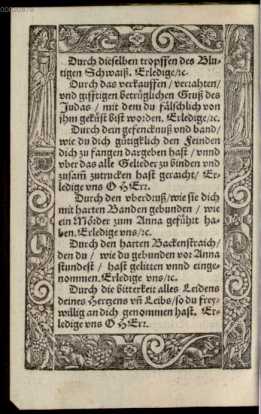 Durch dieselben tropffen des Blu-
tigen Schwaiß. Erledige/ꝛc.
Durch das verkauffen / verrahten/
vnd gifftigen betrüglichen Gruß des
Judas / mit dem du fälschlich von
ihm geküst bist worden. Erledige/ꝛc.
Durch dein gefencknuß vnd band/
wie du dich gütigklich den Feinden
dich zu fangen dargeben hast / vnnd
vber das alle Gelieder zu binden vnd
zusam̄ zutrucken hast geraicht/ Er-
ledige vns O HErr.
Durch den vberdruß/wie sie dich
mit harten Banden gebunden / wie
ein Mörder zum Anna geführt ha-
ben. Erledige vns/ꝛc.
Durch den harten Backenstraich/
den du / wie du gebunden vor Anna
stundest / hast gelitten vnnd einge-
nommen. Erledige vns/ꝛc.
Durch die bitterkeit alles Leidens
deines Hertzens vn̄ Leibs/so du frey-
willig an dich genommen hast. Er-
ledige vns O HErr.